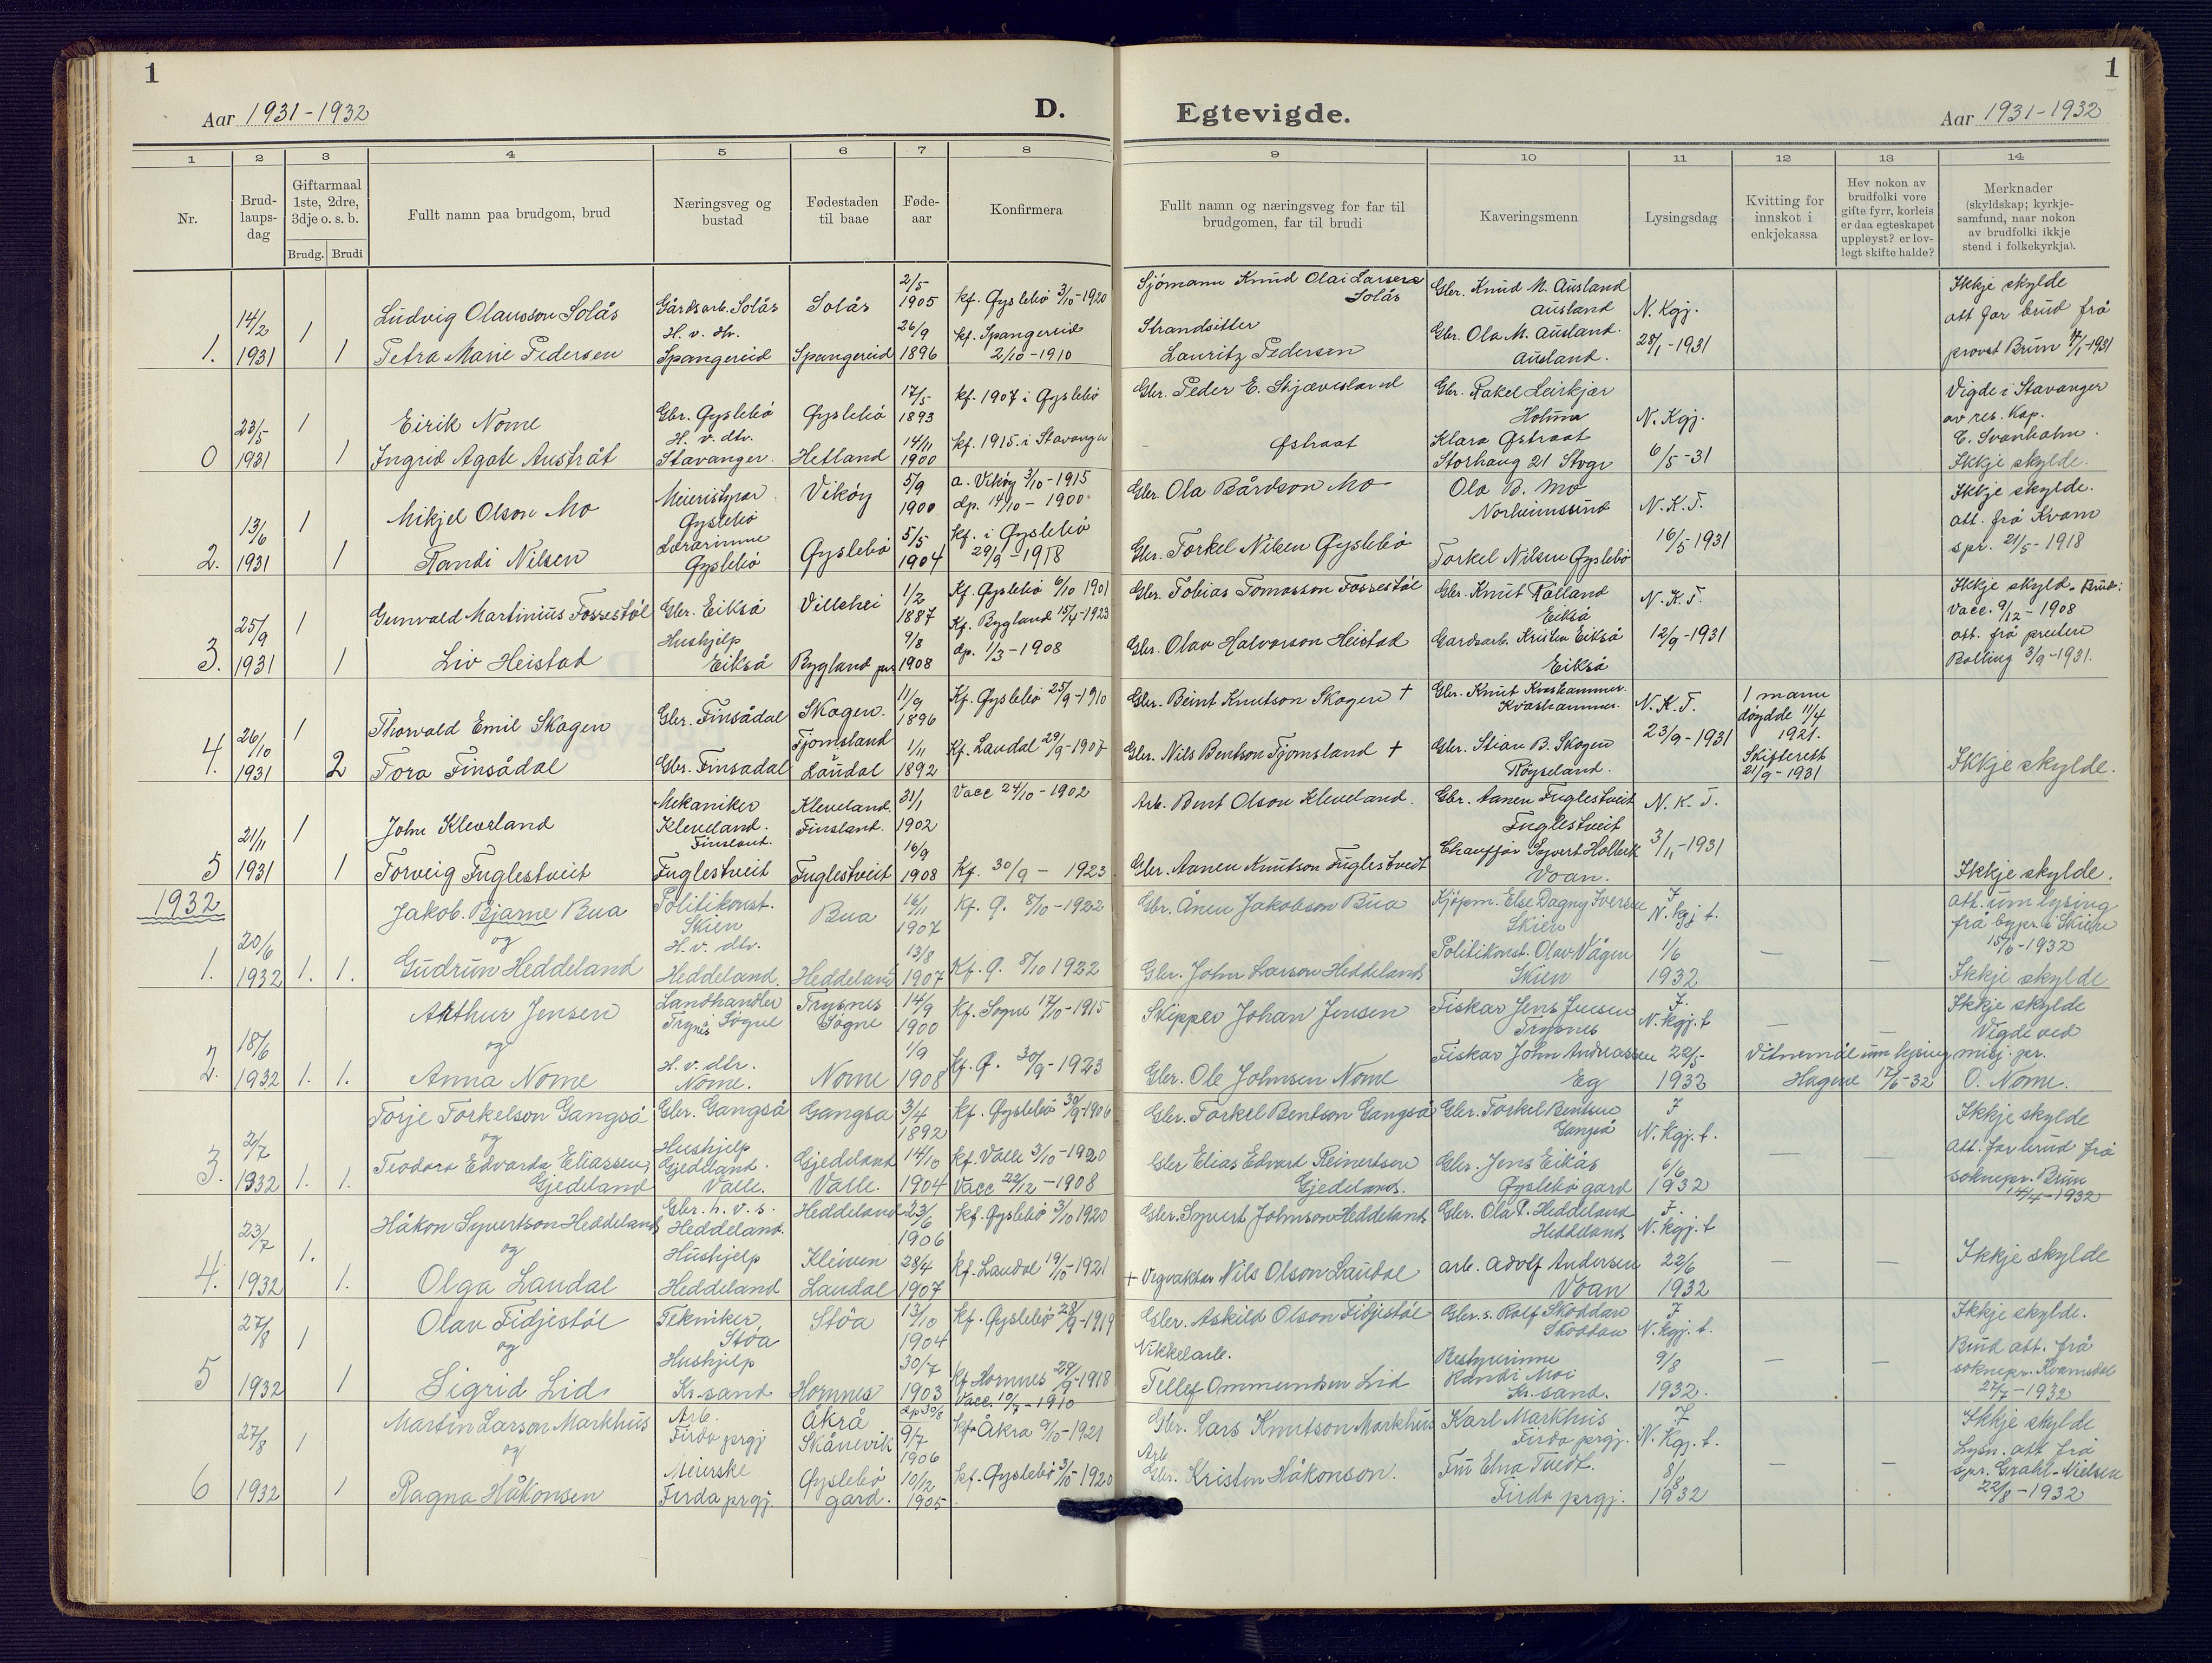 1
Aar 1931-1932
D.
Egtevigde.
Aar 1931-1932
1
1 2 3 4 5 6 7 8 9 10 11 12 13 14
Nr.
Brud-
laups-
dag
Giftarmaal
1ste, 2dre,
3dje o. s. b.
Brudg. Brudi
Fullt namn paa brudgom, brud
Næringsveg og
bustad
Fødestaden
til baae
Føde-
aar
Konfirmera
Fullt namn og næringsveg for far til
brudgomen, far til brudi
Kaveringsmenn
Lysingsdag
Kvitting for
innskot i
enkjekassa
Hev nokon av
brudfolki vore
gifte fyrr, korleis
er daa egteskapet
uppløyst? er lov-
legt skifte halde?
Merknader
(skyldskap; kyrkje-
samfund, naar nokon
av brudfolki ikkje
stend i folkekyrkja).
1. 14/2 1931 1 1
Ludvig Olausson Solås
Petra Marie Pedersen
Gårdsarb. Solås
H. v. dtr.
Spangereid
Solås
Spangereid
2/5 1905
26/9 1896
kf. Øyslebö 3/10-1920
kf. Spangereid
2/10-1910
Sjömann Knud Olai Larsen
Solås
Strandsitter
Lauritz Pedersen
Gbr. Knud M. Ausland
Ausland
Gbr. Ola M. Ausland.
Ausland.
N. Kgj.
28/1-1931
Ikkje skylde
att for brud frå
provst Brun 17/1-1931
0 23/5 1931 1 1
Eirik Nome
Ingrid Agate Austråt
Gbr. Øyslebö
H. v. dtr.
Stavanger.
Øyslebö
Hetland
17/5 1893
14/11 1900
kf. 1907 i Øyslebö
kf. 1915. i Stavanger
Gbr. Peder E. Skjævesland
Østraat
Gbr. Rakel Leirkjær
Holum
Klara Østraat
Storhaug 21 Stvgr
N. Kgj.
6/5-31
Vigde i Stavanger
av res. Kap.
E. Svanholm.
Ikkje skylde.
2. 13/6 1931 1 1
Mikjel Olson Mo
Randi Nilsen
Meieristyrar
Øyslebö
Lærarinne
Øyslebö
Viköy
Øyslebö
5/9 1900
5/5 1904
a. Viköy 3/10-1915
dp. 14/10-1900
kf. i Øyslebö
29/9-1918
Gbr. Ola Bårdson Mo
Gbr. Torkel Nilsen Øyslebö
Ola B. Mo
Norheimsund
Torkel Nilsen Øyslebö
N. K. T.
16/5 1931
Ikkje skylde.
att. frå Kvam
spr. 21/5-1918
3. 25/9 1931 1 1
Gunvald Martinius Fossestöl
Liv Heistad
Gbr. Eikså
Hushjelp
Eikså
Villehei
Bygland prs
1/2 1887
9/8 1908
Kf. Øyslebö 6/10 1901
Kf. Bygland 15/4-1923
dp. 1/3-1908
Gbr. Tobias Tomasson Fossestöl
Gbr. Olav Halvorson Heistad
Gbr. Knut Röiland
Eikså
Gardsarb. Kristen Eikså
Eikså
N. K. T.
12/9-1931
Ikkje skyld. Brud:
Vacc. 9/12-1908
att. frå presten
Bolling 3/9-1931.
4. 26/10 1931 1 2
Thorvald Emil Skogen
Tora Finsådal
Gbr. Finsådal
Gbr. Finsadal
Skogen.
Tjomsland
Laudal
11/9 1896
1/11 1892
Kf. Øyslebö 25/9-1910
Kf. Laudal 29/9-1907
Gbr. Beint Knutson Skogen +
Gbr. Nils Bentson Tjomsland +
Gbr. Knut Kvashammer.
Kvashammer.
Gbr. Stian B. Skogen
Röyseland.
N. K. T.
23/9-1931
1 mann
döydde 11/4
1921.
Skifterett
21/9-1931
Ikkje skylde.
5 21/11 1931 1 1
John Kleveland
Torveig Fuglestveit
Mekaniker
Kleveland.
Finsland.
Fuglestveit
Kleveland.
Finsland.
Fuglestveit
31/1 1902
16/9 1908
Vacc 24/10-1902
Kf. 30/9-1923
Arb. Bent Olson Kleveland.
Gbr. Aanen Knutson Fuglestvedt
Gbr. Aanen Fuglestveit
Fuglestveit
Chauffør Syvert Holleik
Voan.
N. K. T.
3/11-1931
Ikkje skylde.
1932
1. 20/6 1932 1. 1.
Jakob. Bjarne Bua
og
Gudrun Heddeland
Politikonst.
Skien
H. v. dtr.
Heddeland.
Bua
Heddeland
16/11 1907
13/8 1907
Kf. Ø. 8/10-1922
Kf. Ø. 8/10 1922
Gbr. Ånen Jakobson Bua
Gbr. John Larson Heddeland
Kjöpm. Else Dagny Iversen
Skien
Politikonst. Olav Vågen
Skien
F
N. kgj t.
1/6
1932
—
—
att. um lysing
frå bypr. i Skien
15/6-1932
Ikkje skylde
2. 18/6 1932 1. 1.
Arthur Jensen
og
Anna Nome
Landhandler
Trysnes Sögne
H. v. dtr.
Nome.
Trysnes
Sögne
Nome
14/9 1900
1/9 1908
Kf. Sogne 17/10-1915
Kf. Ø. 30/9-1923
Skipper Johan Jensen
Gbr. Ole Johnsen Nome
Fiskar Jens Jensen
Trysnes
Fiskar John Andreassen
Eg
F.
N. kgj. t
22/5
1932
—
—
Vitnemål um lysing
Hagene 17/6-32
Ikkje skylde
Vigde ved
misj. pr.
O. Nome.
3. 2/7 1932 1. 1.
Torje Torkelson Gangså
og
Teodora Edvarda Eliassen,
Gjedeland
Gbr. Gangså
Hushjelp
Gjedeland.
Valle.
Gangsa
Gjedeland
Valle.
3/4 1892
14/10 1904
kf. Øyslebö 30/9-1906
kf. Valle 3/10-1920
Vacc 22/12-1908
Gbr. Torkel Bentson Gangså
Gbr Elias Edvard Reinertsen
Gjedeland.
Gbr. Torkel Bentsen
Gangså
Gbr. Jens Eikås
Øyslebö gard
F
N. kgj. t.
6/6
1932
—
—
Ikkje skylde
Att. for brud frå
soknepr. Brun
14/4-1932
4. 23/7 1932 1. 1.
Håkon Syvertson Heddeland
og
Olga Laudal
Gbr. h. v. s.
Heddeland.
Hushjelp
Heddeland
Heddeland
Kleiven
Laudal
23/6 1906
28/4 1907
kf. Øyslebö 3/10 1920
kf. Laudal 19/10-1921
Gbr. Syvert Johnson Heddeland
+ Vegvaktar Nils Olson Laudal
Gbr. Ola P. Heddeland
Heddeland
arb. Adolf Andersen
Voan
F.
N. kgj. t
22/6
1932
—
—
Ikkje skylde
5 27/8 1932 1 1
Olav Fidjestöl
og
Sigrid Lid
Tekniker,
Stöa
Hushjelp
Kr.sand
Stöa
Hornnes
13/10 1904
30/7 1903
kf. Øyslebö 28/9-1919
kf Hornnes 29/9-1918
Vacc. 10/7-1910
Gbr. Askild Olson Fidjestöl
Nikkelarb.
Tellef Ommundsen Lid
Gbr. s. Rolf Skoddan
Skoddan
Bestyrerinne
Randi Moi
Kr.sand.
F
N. kgj. t.
9/8
1932.
—
—
Ikkje skylde.
Brud att. frå
soknepr. Kvamsdal
27/7-1932
6 27/8 1932 1 1
Martin Larson Markhus
og
Ragna Håkonsen
Arb.
Firda prgj
Meierske
Firda prgj.
Åkrå
Skånevik
Øyslebö
gard.
dp 30/8
9/7 1906
10/12 1905
kf. Åkra 9/10-1921
kf. Øyslebö 3/10-1920
Gbr. Lars Knutson Markhus
Arb
Gbr. Kristen Håkonson.
Karl Markhus
Firda prgj.
Fru Elna Tuedt.
Firda prgj.
F
N. Kgj. t.
8/8
1932
—
—
Ikkje skylde
Lysn. att frå
spr. Grahl-Nielsen
22/8-1932